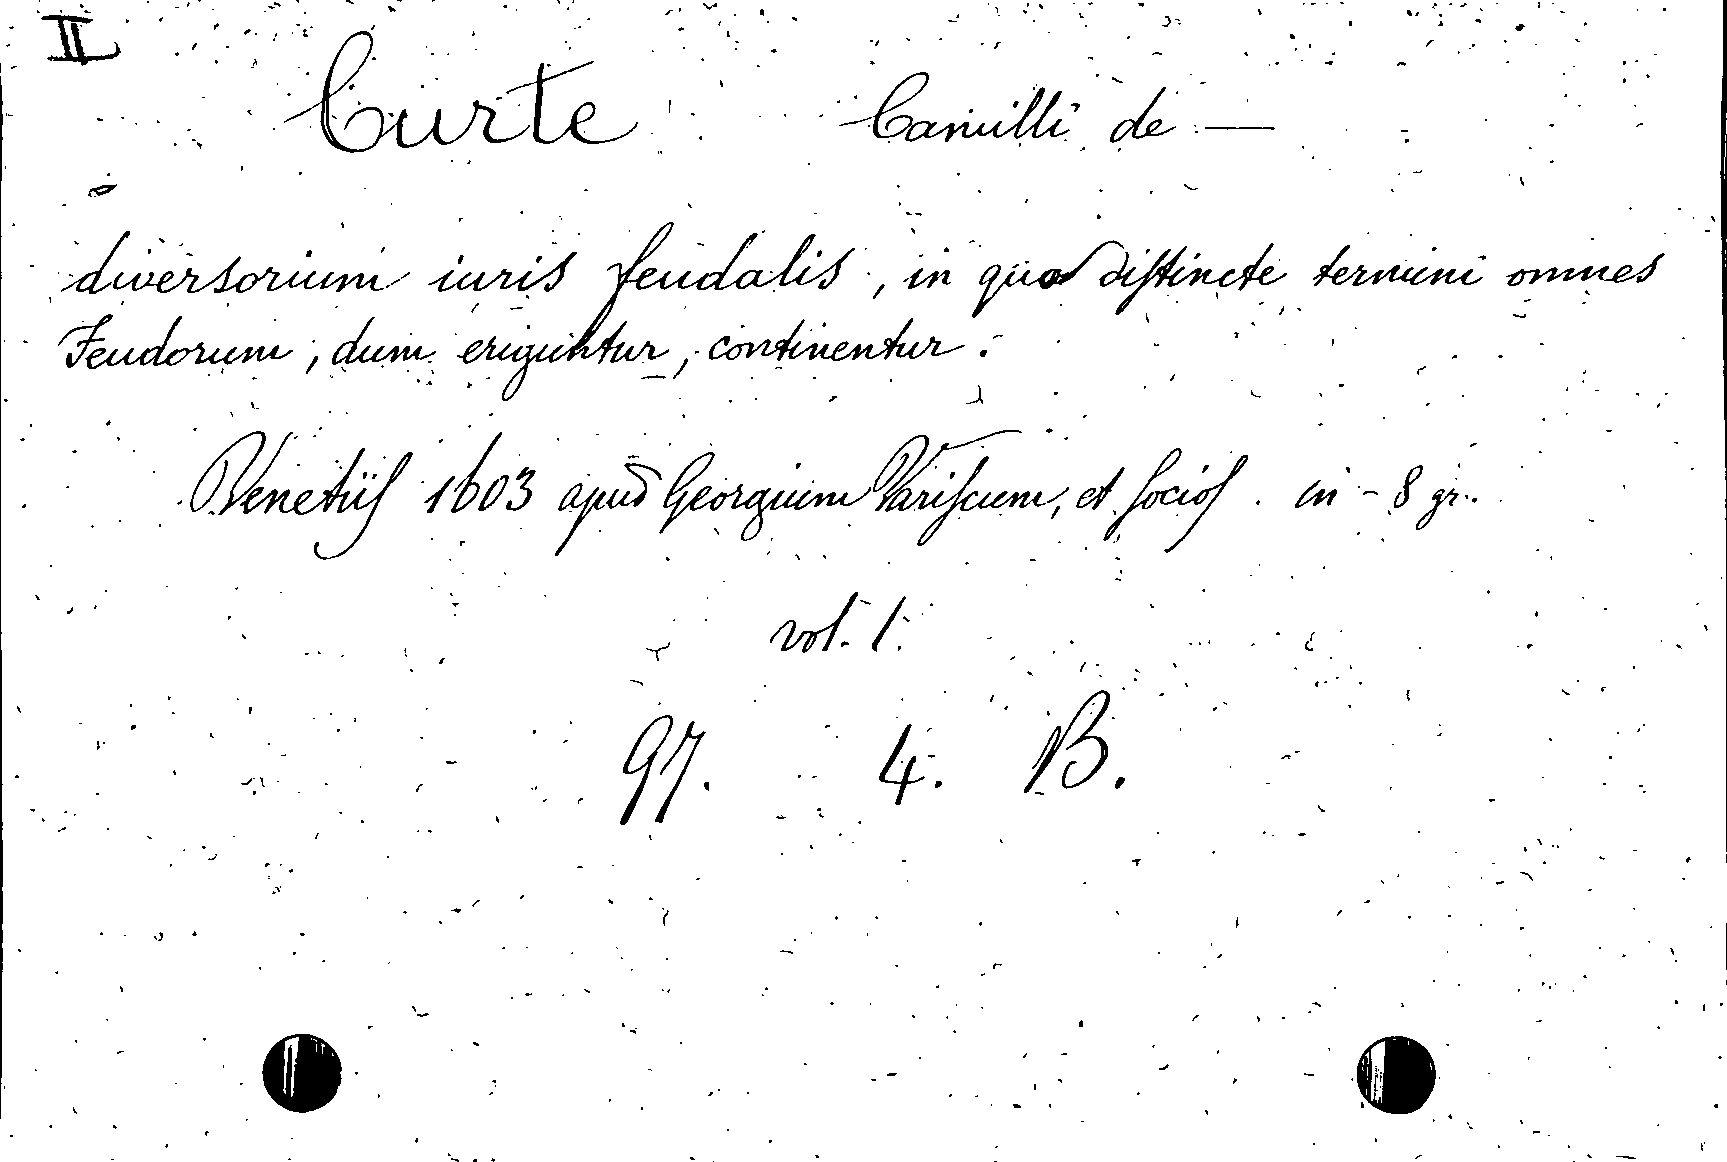 II
Curte Camilli de —
diversorium iuris feudalis, in quo distincte termini omnes
Feudorum, dum eriguntur, continentur.
Venetiis 1603 apud Georgium Variscum, et socios. in - 8 gr.
vol. 1.
97. 4. B.